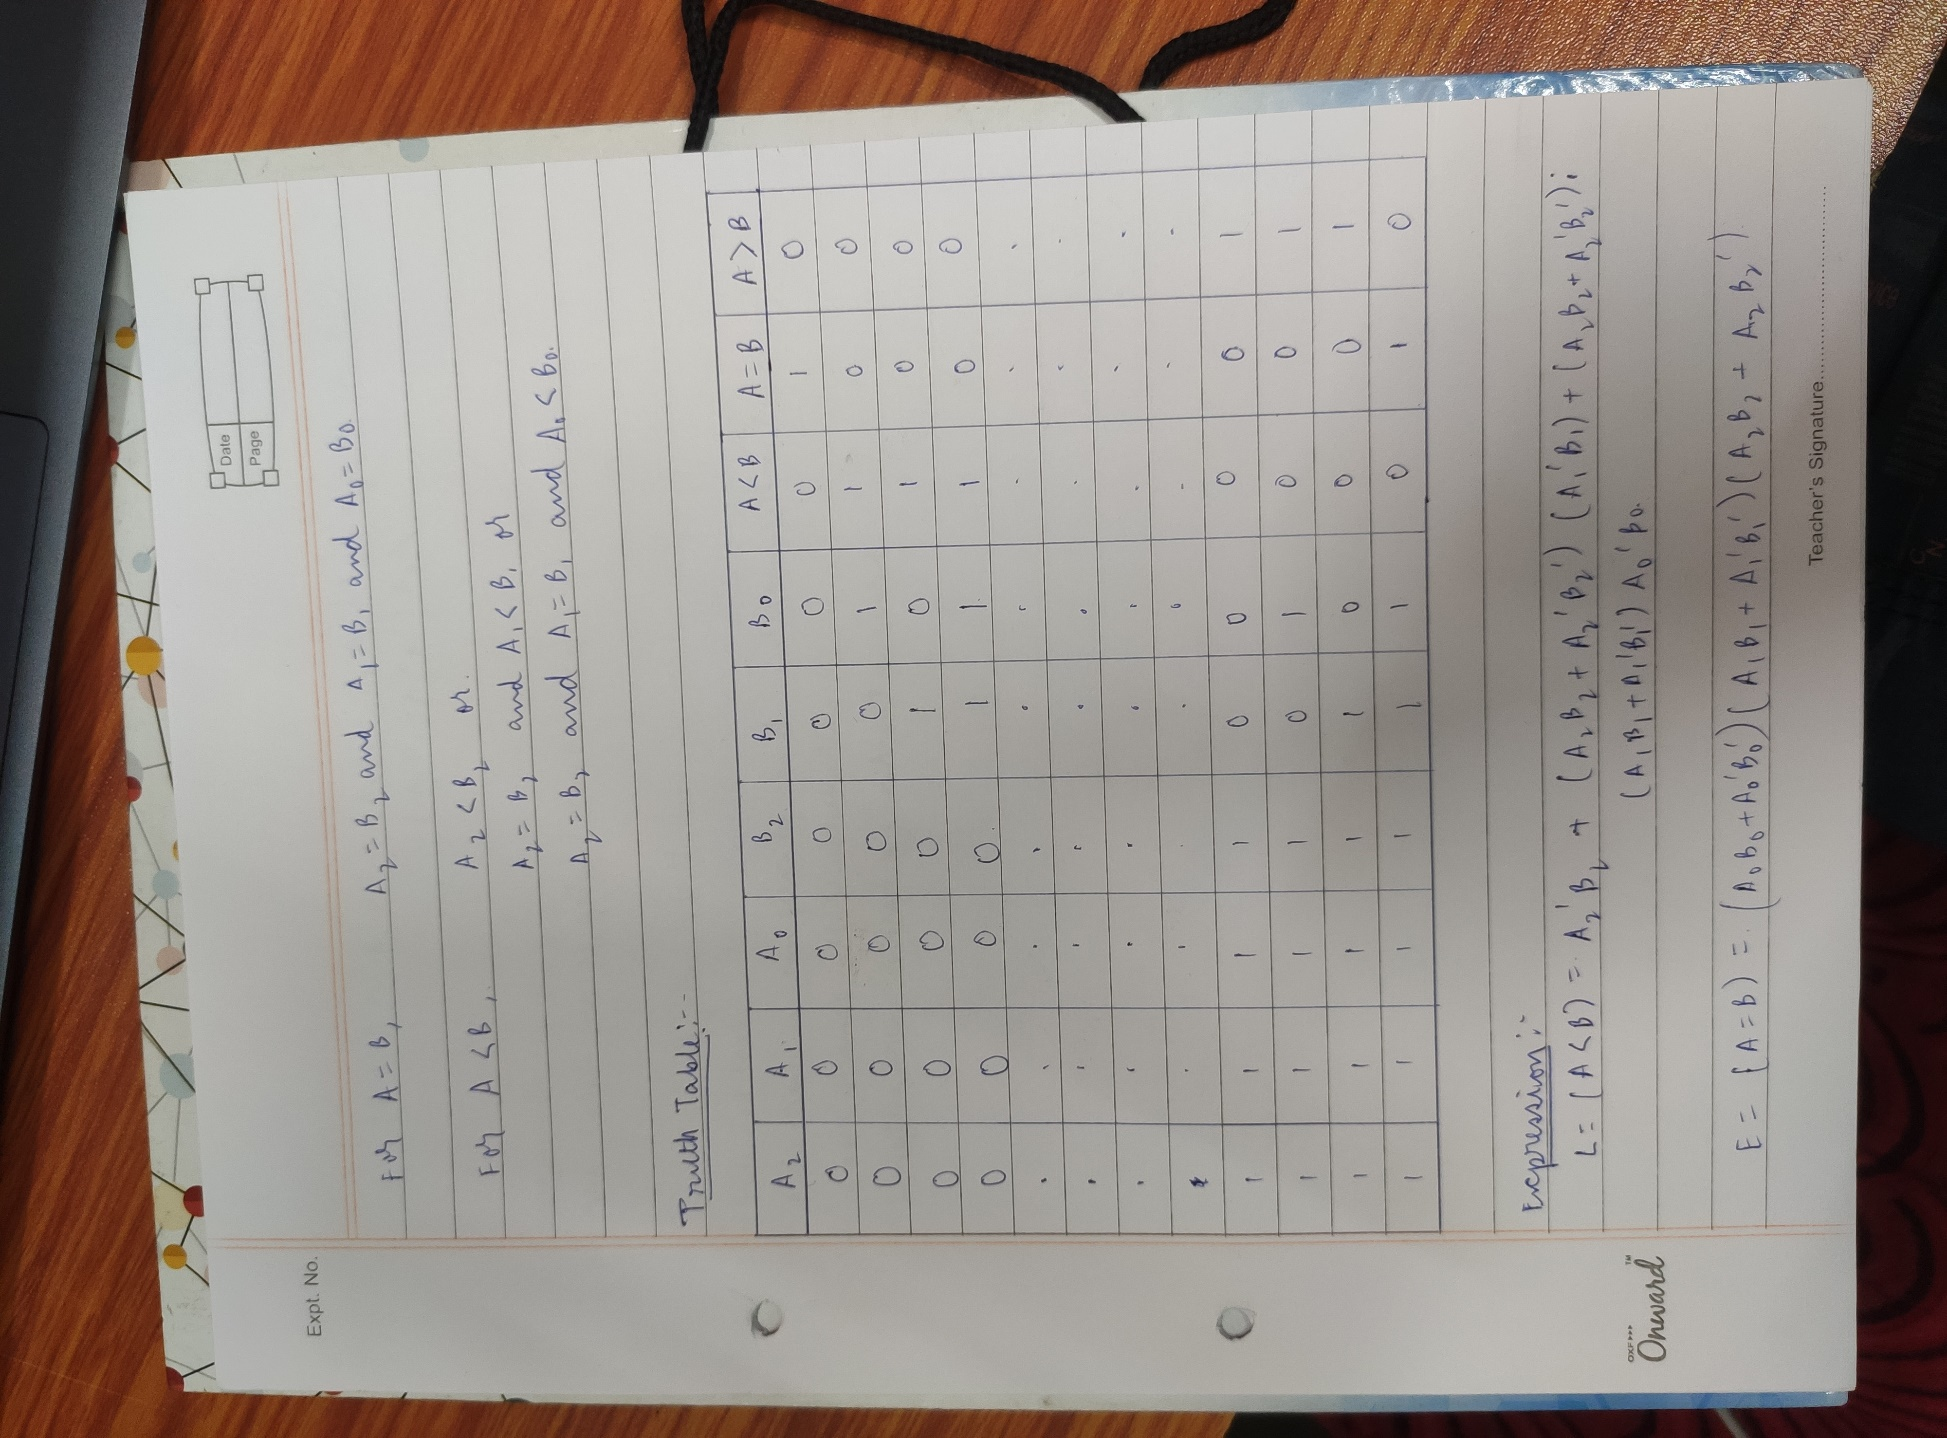 Date
Page
Expt. No.
For A = B, A₂ = B₂ and A₁ = B₁ and A₀ = B₀.
For A < B, A₂ < B₂ or.
A₂ = B₂ and A₁ < B₁ or
A₂ = B₂ and A₁ = B₁ and A₀ < B₀.
Truth Table:-
A₂ A₁ A₀ B₂ B₁ B₀ A<B A=B A>B
0 0 0 0 0 0 0 1 0
0 0 0 0 0 1 1 0 0
0 0 0 0 1 0 1 0 0
0 0 0 0 1 1 1 0 0
. . . . . . . . .
. . . . . . . . .
. . . . . . . . .
. . . . . . . . .
1 1 1 1 0 0 0 0 1
1 1 1 1 0 1 0 0 1
1 1 1 1 1 0 0 0 1
1 1 1 1 1 1 0 1 0
Expression:-
L = (A<B) = A₂'B₂ + (A₂B₂ + A₂'B₂') (A₁'B₁) + (A₂B₂ + A₂'B₂');
(A₁B₁ + A₁'B₁') A₀'B₀.
E = (A=B) = (A₀B₀ + A₀'B₀') (A₁B₁ + A₁'B₁') (A₂B₂ + A₂B₂')
OXF▸▸▸
Onward™
Teacher's Signature..............................